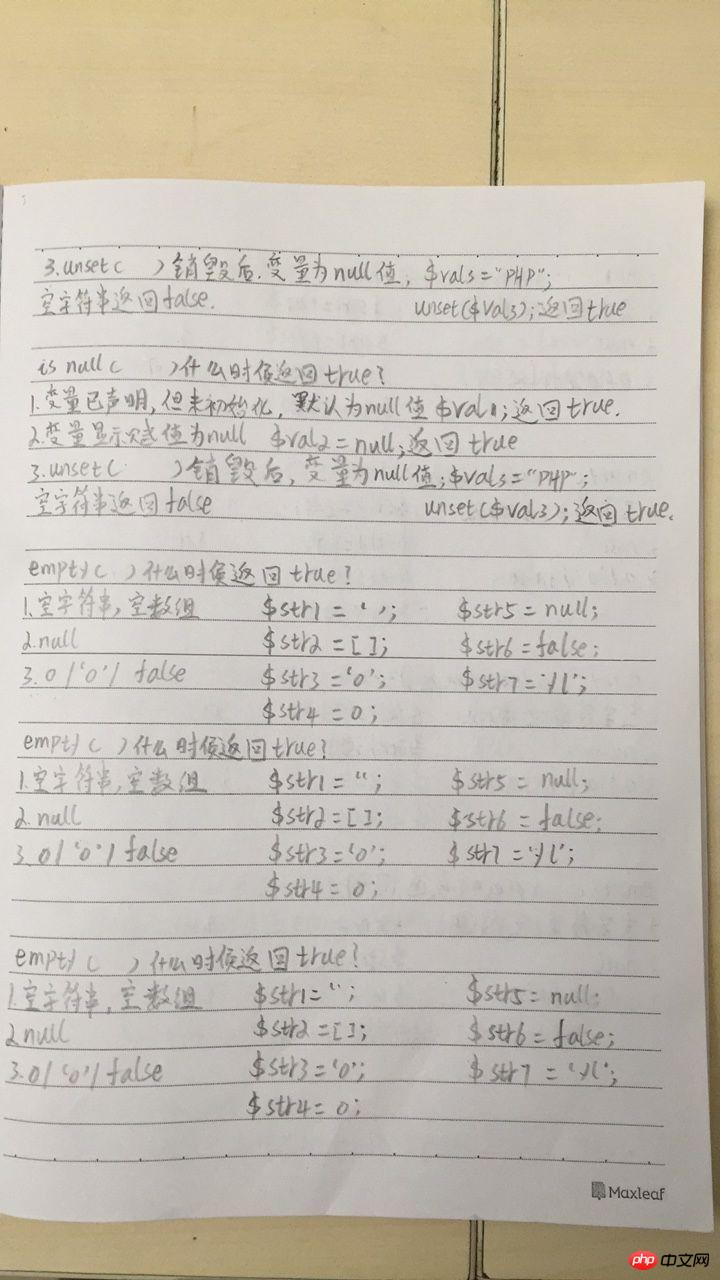 3.unset( )销毁后.变量为null值; $val3="PHP";
空字符串返回false. unset($val3);返回true
is null( )什么时候返回true?
1.变量已声明,但未初始化,默认为null值 $val1;返回true.
2.变量显示赋值为null $val2=null;返回true
3.unset( )销毁后,变量为null值;$val3="PHP";
空字符串返回false unset($val3);返回true.
empty( )什么时候返回true?
1.空字符串,空数组 $str1 = ''; $str5 = null;
2.null $str2 = [ ]; $str6 = false;
3.0/'0'/ false $str3 = '0';
$str4 = 0;
empty( )什么时候返回true?
1.空字符串,空数组 $str1 = ''; $str5 = null;
2.null $str2 = [ ]; $str6 = false;
3.0/'0'/ false $str3 = '0';
$str4 = 0;
empty( )什么时候返回true?
1.空字符串,空数组 $str1= ''; $str5 = null;
2.null $str2 = [ ]; $str6 = false;
3.0/'0'/ false $str3 = '0';
$str4 = 0;
Maxleaf
php 中文网